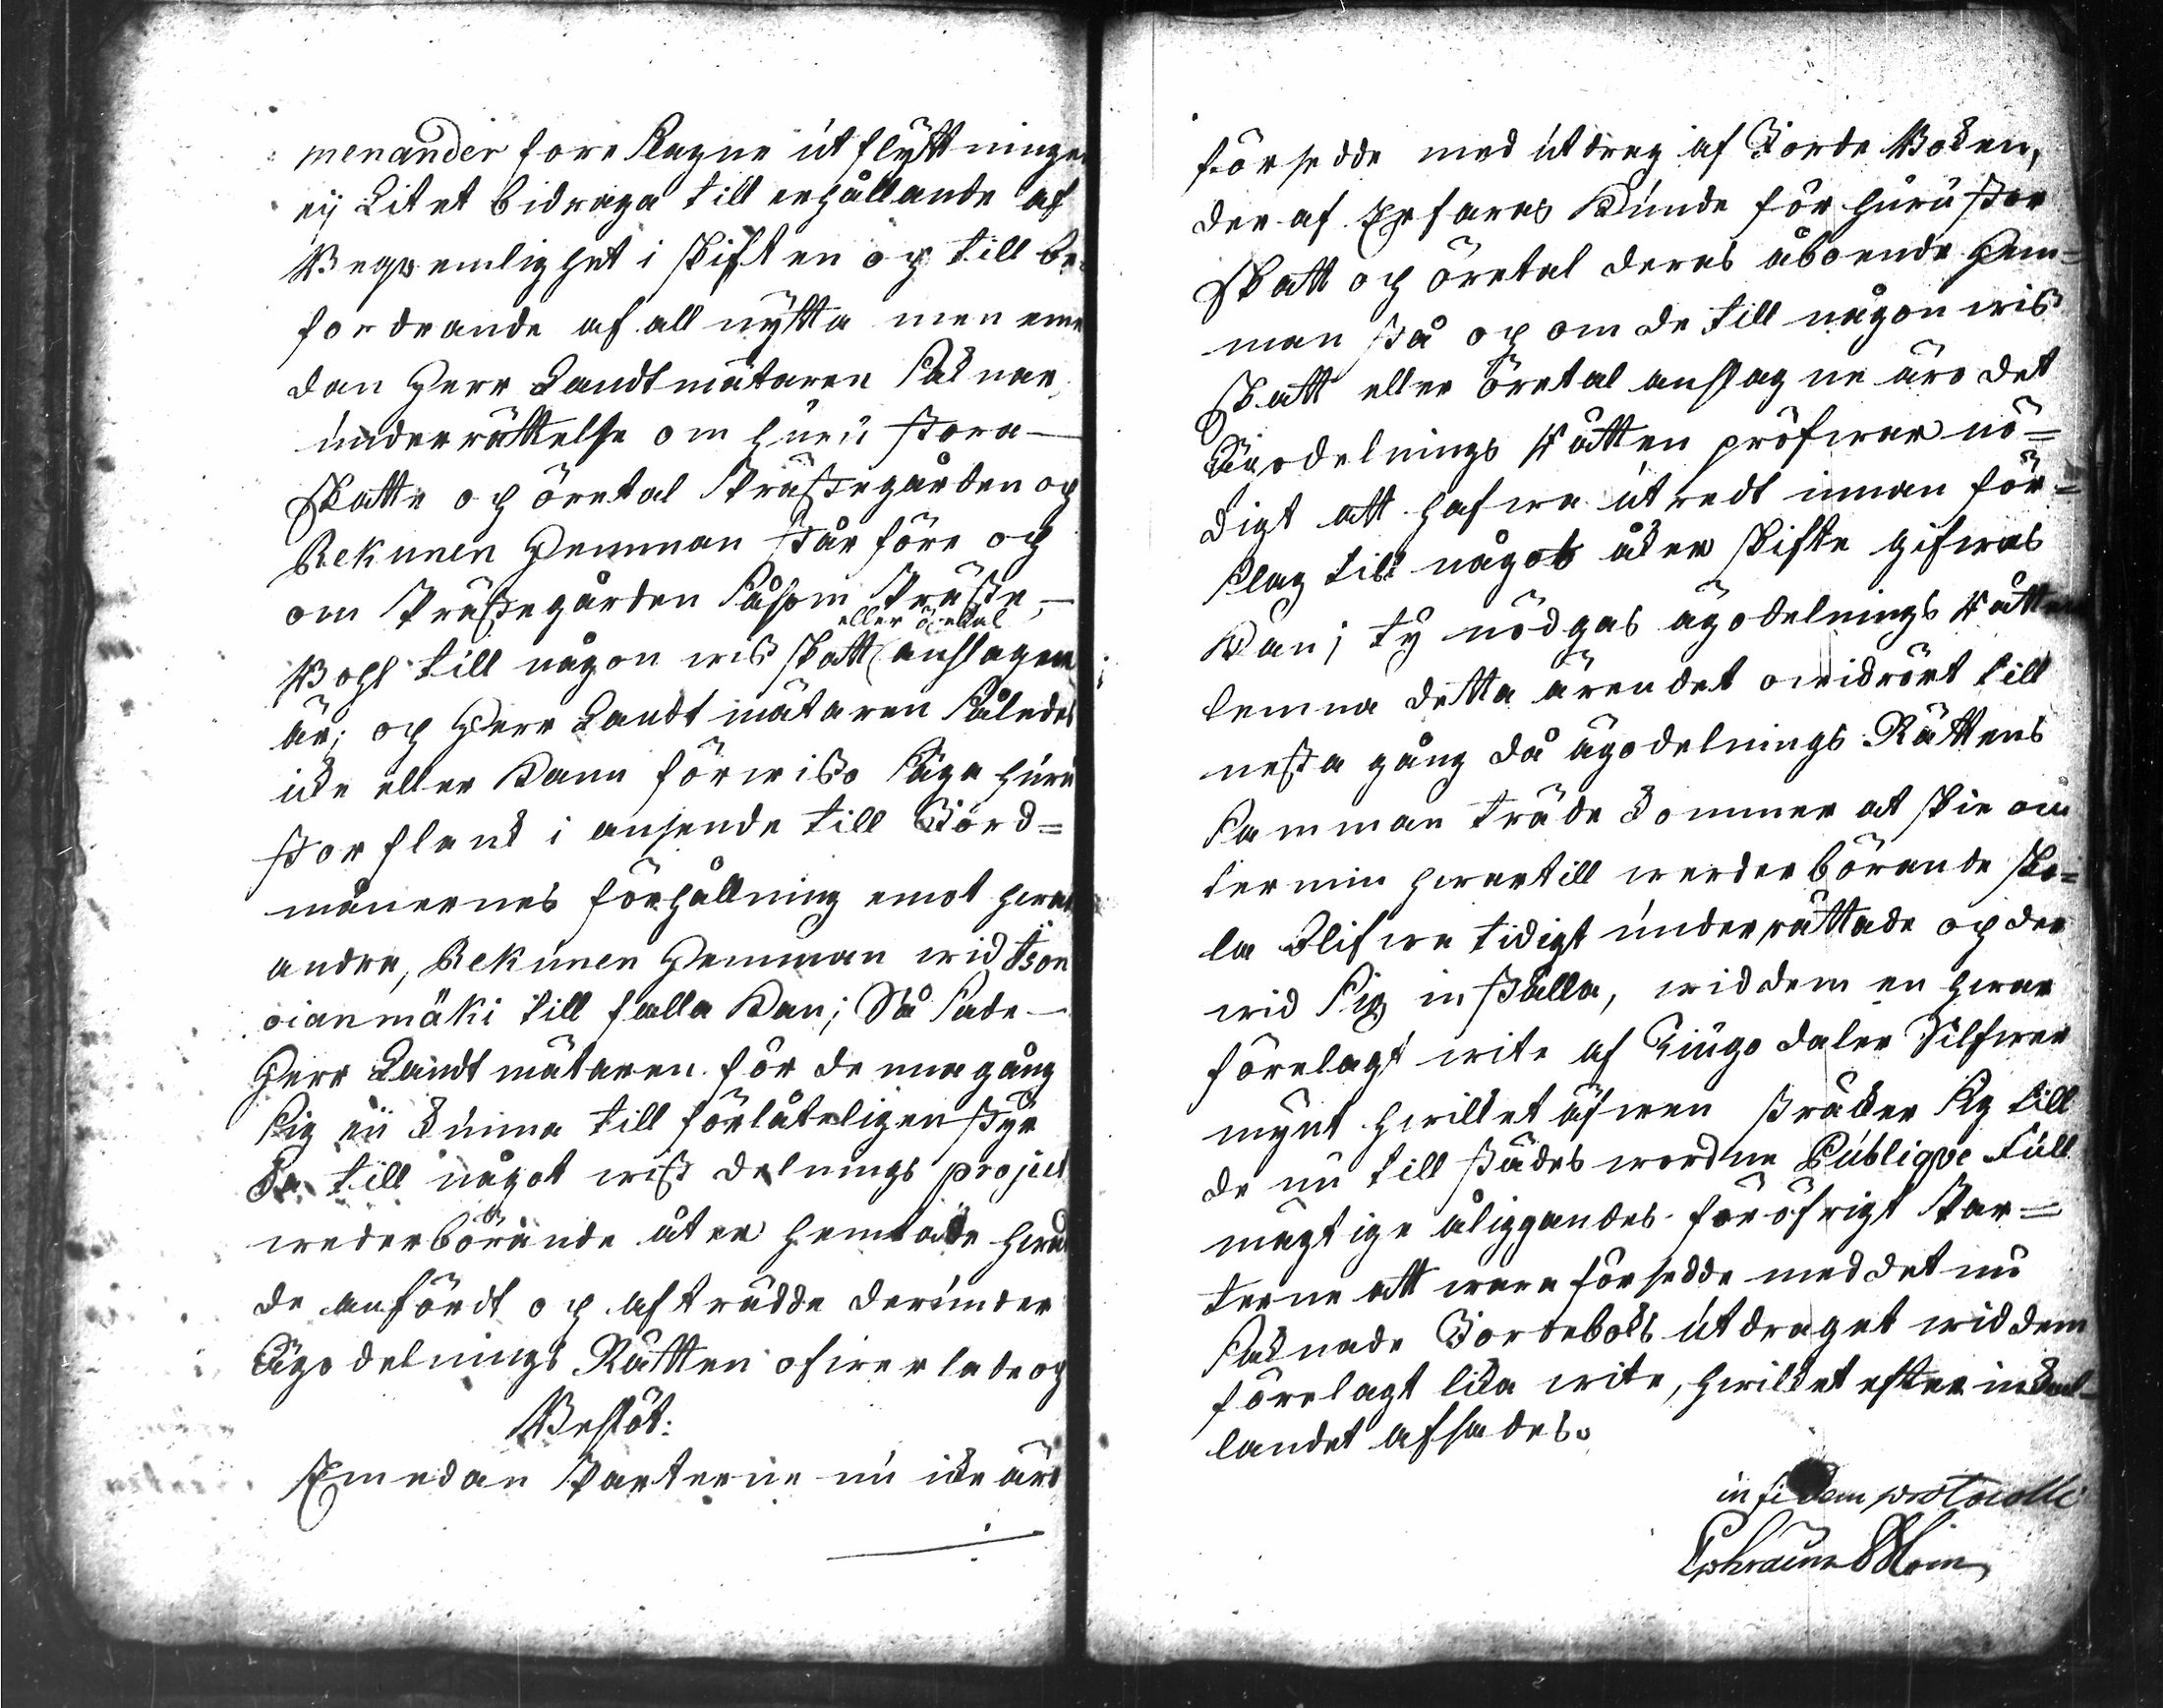 menander foreslagne utflyttningen
eij Litet bidraga till erhållande af
Beqvemlighet i skiften och till be-
fordrande af all nytta men eme
dan Herr Landtmätaren saknar
underrättelse om huru stora
skatte och öretal Prästegården och
Rekunen Hemman står före och
om Prästegården såsom Präste-
eller öretal
Bohl till någon wiss skatt anslagen
är; och Herr Landtmätaren således
icke eller kann förwisso säga huru
stor flenk i anseende till Jord=
månernes förhållning emot hwar
andra, Rekunen Hemman wid Iso
oianmäki till falla kan; Så sade
Herr Landtmätaren för denna gång
sig eij kunna till förlåteligen styr
ka till något wist delnings project
wederbörande åter hemtade hwad
de anfördt och afträdde derunder
Ägodelnings Rätten öfwerlade och
Beslöt:
Emedan Parterne nu icke äro
försedde med utdrag af Jorde Boken,
der af Erfaras kunde för huru stor
skatt och öretal deras åboende Hem=
man stå och om de till någon wiss
skatt eller öretal anslagne äro det
Ägodelnings Rätten pröfwar nö=
digt att hafwa utredt innan för=
slag till något åker skifte gifwas
kan; ty nödgas ägodelnings Rätten
lemna detta ärendet owidrört till
nesta gång då ägodelnings Rättens
sammanträde kommer at skie om
termin hwartill wederbörande sko=
la blifwa tidigt underrättade och der
wid sig inställa, wid dem en hwar
förelagt wite af Tiugo daler Silfwer
mynt hwilket äfwen sträcker sig till
de nu till städes wordne Publiqve full
mägtige åliggandes föröfrigt Par=
terne att wara försedde med det nu
saknade Jordeboks utdraget wid dem
förelagt lika wite, hwilket efter inkal-
landet afsades.
in fidem protocolli